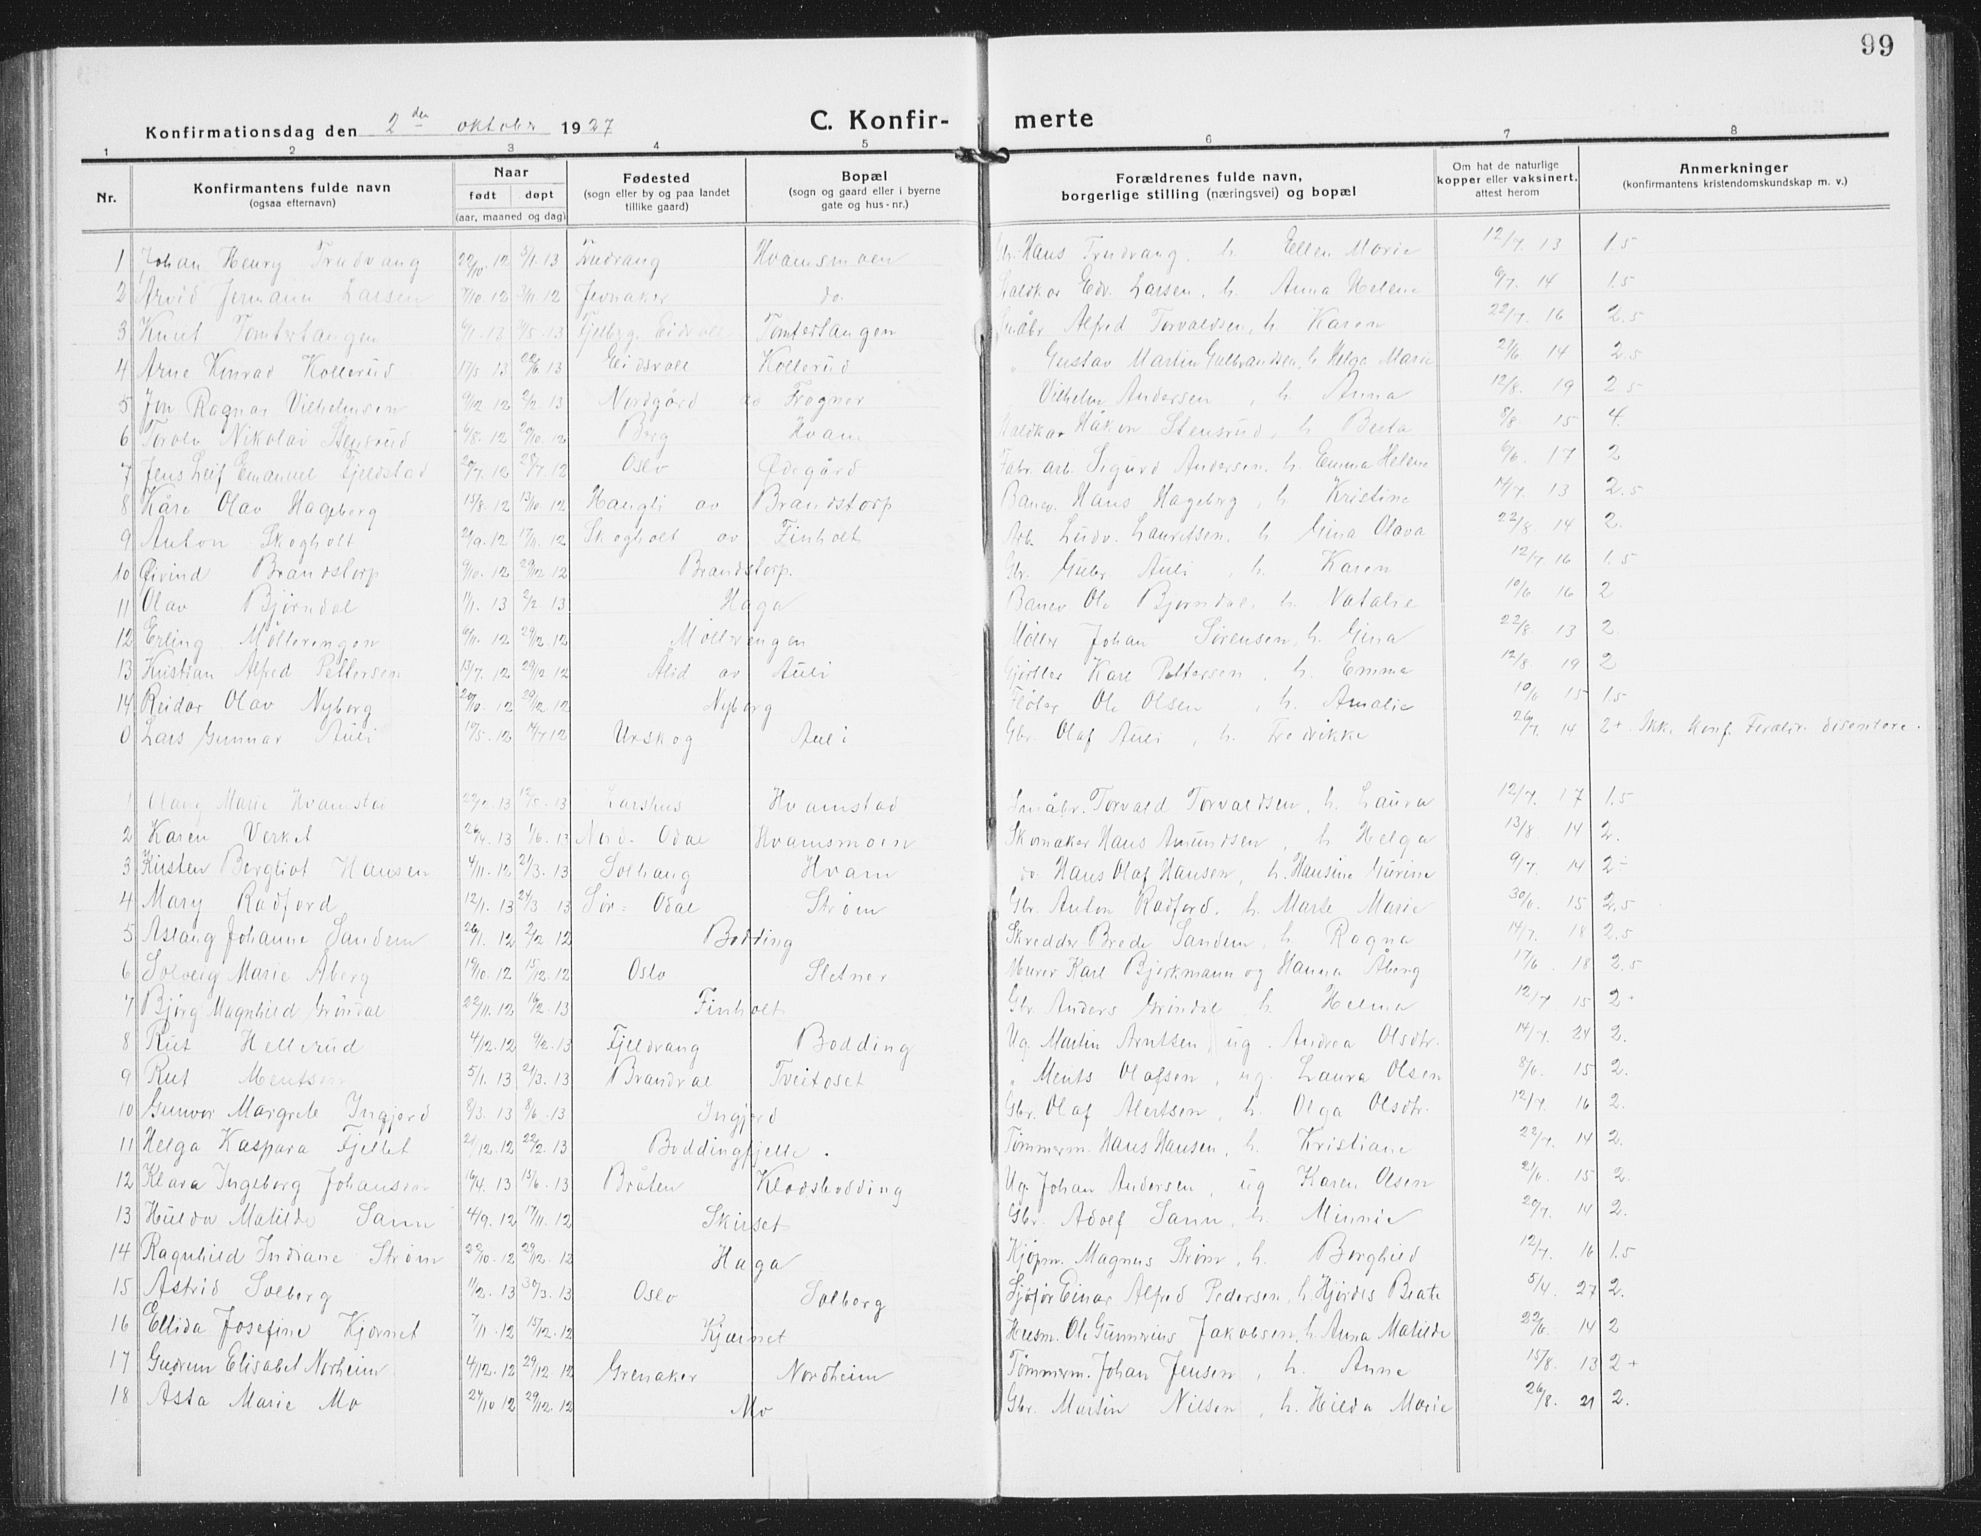 99
Konfirmationsdag den 2den oktober 1927
C. Konfir- merte
1 2 3 4 5 6 7 8
Nr. | Konfirmantens fulde navn (ogsaa efternavn) | Naar født døpt (aar, maaned og dag) | Fødested (sogn eller by og paa landet tillike gaard) | Bopæl (sogn og gaard eller i byerne gate og hus-nr.) | Forældrenes fulde navn, borgerlige stilling (næringsvei) og bopæl | Om hat de naturlige kopper eller vaksinert, attest herom | Anmerkninger (konfirmantens kristendomskundskap m. v.)
1 Johan Henry Trudvang 22/10. 12 5/1. 13 Trudvang Hvamsmoen Hans Trudvang, h. Ellen Marie 12/7. 13 1.5
2 Arvid Jermann Larsen 3/11. 12 Jevnaker do. Edv. Larsen, h. Anna Helene 9/7. 14 1.5
3 Knut Tomtertangen 6/1. 13 Eidsvoll Tomtertangen Småbr. Alfred Torvaldsen, h. Karen 22/7. 16 2.5
4 Arne Konrad Kollerud 17/5 13 22/6 13 Eidsvoll Kollerud " Gustav Martin Gulbrandsen, h. Helga Marie 21/6 14 2.5
5 Jon Ragnar Vilhelmsen 9/12 12 2/2 13 Nordgård av Frogner Vilhelm Andersen, h. Anna 12/8. 19 2.5
6 Torolv Nikolai Stensrud 6/8. 12 20/10. 12 Berg Hvam Håkon Stensrud, h. Berta 8/8 15 4.
7 Jens Leif Emanuel Fjeldstad 20/7. 12 Oslo Ødegård Fabr. arb. Sigurd Andersen, h. Emma Helene 6/6. 17 2
8 Kåre Olav Hageberg 15/8. 12 13/10. 12 Haugli av Brandstorp Banev. Hans Hageberg, h. Kristine 14/7. 13 2.5
9 Anton Skogholt 21/9. 12 17/11. 12 Skogholt av Finholt Arb. Ludv. Lauritsen, h. Gina Olava 22/8 14 2.
10 Øivind Brandstorp 9/10. 12 29/12 12 Brandstorp. Gbr. Gulbr. Auli, h. Karen 12/7. 16 1.5
11 Olav Bjørndal 1/1. 13 2/2 13 Haga Banev Ole Bjørndal, h. Natalie 10/6 16 2
12 Erling Møllerengen 6/11. 12 29/12. 12 Møllerengen Møller Johan Sørensen, h. Gina 22/8 13 2
13 Kristian Alfred Pettersen 13/7. 12 29/12 12 Ålid av Auli Gjørtler Karl Pettersen, h. Emma 12/8. 19 2
14 Reidar Olav Nyborg 12 29/12. 12 Nyborg Fløter Ole Olsen, h. Amalie 10/6 15 1.5
0 Lars Gunnar Auli 19/5. 12 14/7 12 Urskog Auli Gbr. Olaf Auli, h. Fredrikke 26/7. 14 2+ Ikke konf. Foreldr. disentere.
1 Marie Hvamstad 22/2. 13 12/5. 13 Larshus Hvamstad Småbr. Torvald Torvaldsen, h. Laura 12/7. 17 1.5
2 Karen Verket 26/4. 13 1/6. 13 Nord-Odal Hvamsmoen Skomaker Hans Amundsen, h Helga 13/8. 14 2.
3 Kirsten Bergliot Hansen 4/11. 12 21/3. 13 Solhaug Hvam do. Hans Olaf Hansen, h. Hansine Gurine 9/7. 14 2÷
4 Mary Rådford 12/1. 13 24/3. 13 Sør-Odal Strøm Gbr. Anton Rådford, h. Marte Marie 30/6. 15 2.5
5 Aslaug Johanne Sandem 26/1. 12 2/2 12 Bodding Skredder Brede Sandem, h. Ragna 14/7. 18 2.5
6 Solveig Marie Åberg 19/10. 12 15/12. 12 Oslo Sletner Murer Karl Bjørkmann og Hanna Åberg 17/6 18 2.5
7 Bjørg Magnhild Grøndal 22/11. 12 16/2. 13 Finholt Gbr. Anders Grøndal, h. Helma 12/7 15 2
8 Rut Hellerud 4/12. 12 9/2. 13 Fjeldvang Bodding Ug. Martin Arntsen, ug. Andrea Olsdtr. 14/7. 24 2.
9 Rut Mentsen 5/1. 13 21/3. 13 Brandval Tveitoset " Ments Olafsen, ug. Laura Olsen 8/6. 15 2.
10 Gunvor Margrete Ingjerd 8/3. 13 8/6. 13 Ingjerd Gbr. Olaf Alertsen, h. Olga Olsdtr. 12/7. 16 2.
11 Helga Kaspara Fjellet 21/12. 12 22/2. 13 Boddingfjelle. Tømmerm. Hans Hansen, h. Kristiane 22/7. 14 2.
12 Klara Ingeborg Johansen 16/4. 13 15/6. 13 Bråten Klodsbodding Ug. Johan Andersen, ug Karen Olsen 21/6. 15 2.
13 Hulda Matilde Sann 4/9. 12 17/11. 12 Skirset Gbr. Adolf Sann, h. Minnie 20/7. 14 2.
14 Ragnhild Indiane Strøm 22/10. 12 29/12. 12 Haga Kjøpm. Magnus Strøm, h. Borghild 12/7. 16 1.5
15 Astrid Solberg 11/2. 13 30/3. 13 Oslo Solberg Sjåfør Einar Alfred Pedersen, h. Hjørdis Beate 5/4. 27 2.
16 Ellida Josefine Kjernet 7/11. 12 15/12. 12 Kjærnet Husm. Ole Gunnerius Jakobsen, h. Anna Matilde 22/6. 14 2
17 Gudrun Elisabet Norheim 4/12. 12 29/12. 12 Grenaker Nordheim Tømmerm. Johan Jensen, h. Anne 15/8. 13 2+
18 Asta Marie Mo 24/10 12 29/12. 12 Mo Gbr. Martin Nilsen, h. Hilda Marie 26/8. 21 2.